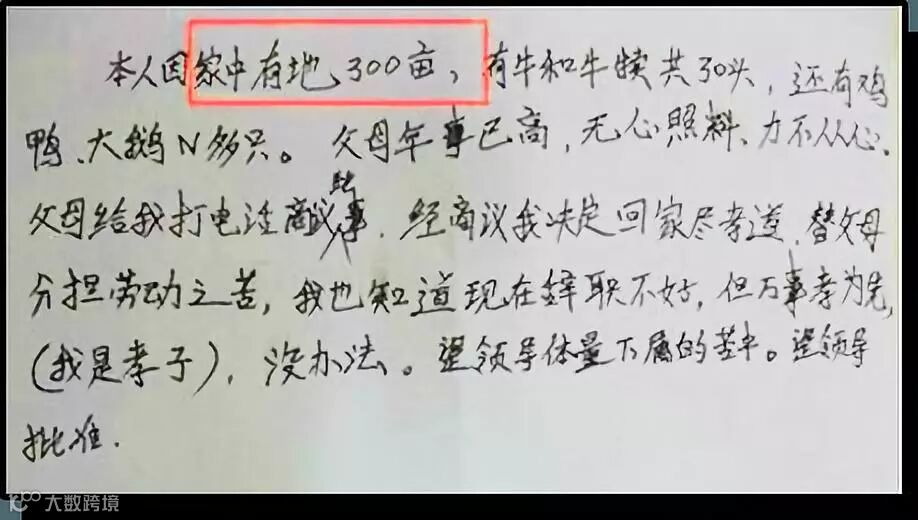 本人因家中有地300亩，有牛和牛犊共30头，还有鸡
鸭、大鹅N多只。父母年事已高，无心照料、力不从心、
父母给我打电话商议此事，经商议我决定回家尽孝道，替父母
分担劳动之苦，我也知道现在辞职不好，但万事孝为先，
(我是孝子)，没办法。望领导体量下属的苦中。望领导
批准.
大数跨境